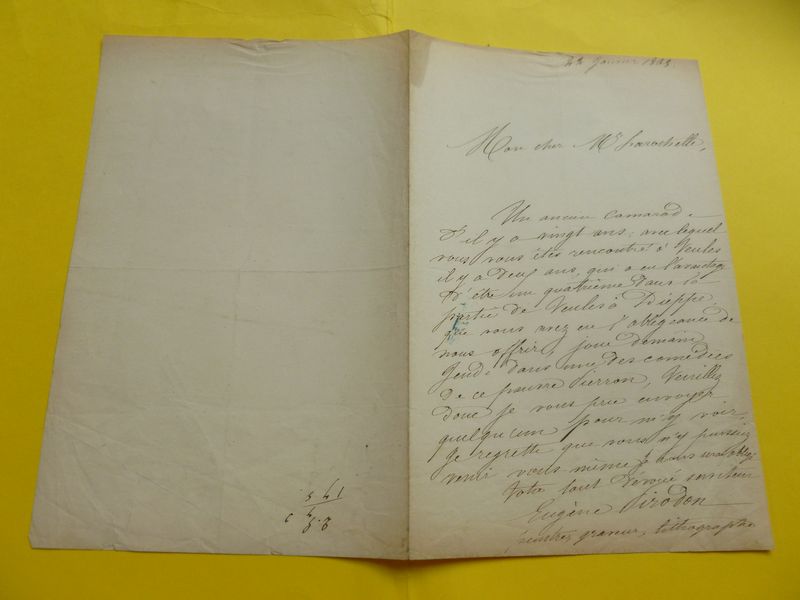 Janvier
Mon cher Mr Larochelle,
Un ancien camarade
d'il y a vingt ans, avec lequel
vous vous êtes rencontré à Veules
il y a deux ans, qui a eu l'avantage
d'être un quatrième dans la
partie de Veules à Dieppe,
que vous avez eu l'obligeance de
nous offrir, joue demain
Jeudi dans une des comédies
de ce pauvre Pierron, Veuillez
donc je vous prie envoyer
quelqu'un pour m'y voir,
Je regrette que vous n'y puissiez
venir vous même &
Votre tout dévoué serviteur
Eugène Pirodon
peintre, graveur, lithographe